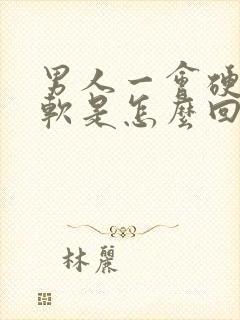 男人一會硬
軟是怎麼回
林麗